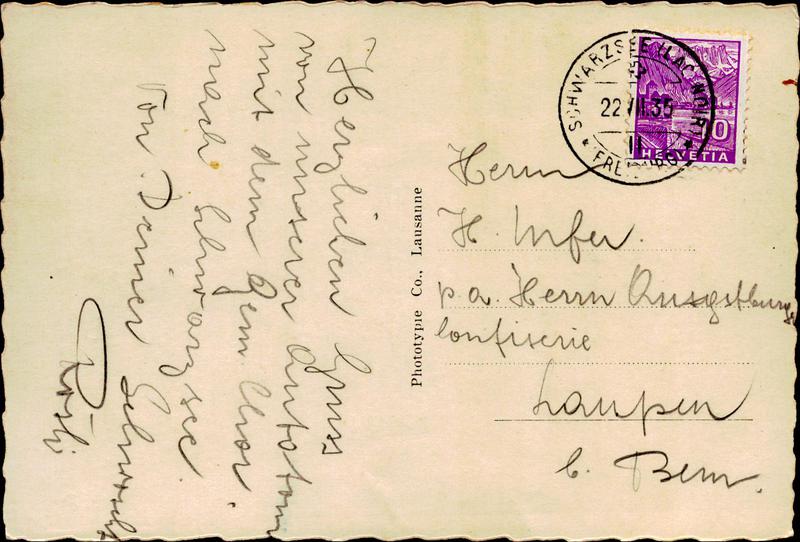 Herzlichen Gruss
von unserer Autotour
mit dem Gem. Chor
nach Schwarzsee
Von Deiner
Rösli
Phototypie Co., Lausanne
SCHWARZSEE (LAC NOIR)
22 VII.35
11
HELVETIA
10
Herrn
H.
p. a. Herrn
Confiserie
Laupen
b. Bern.